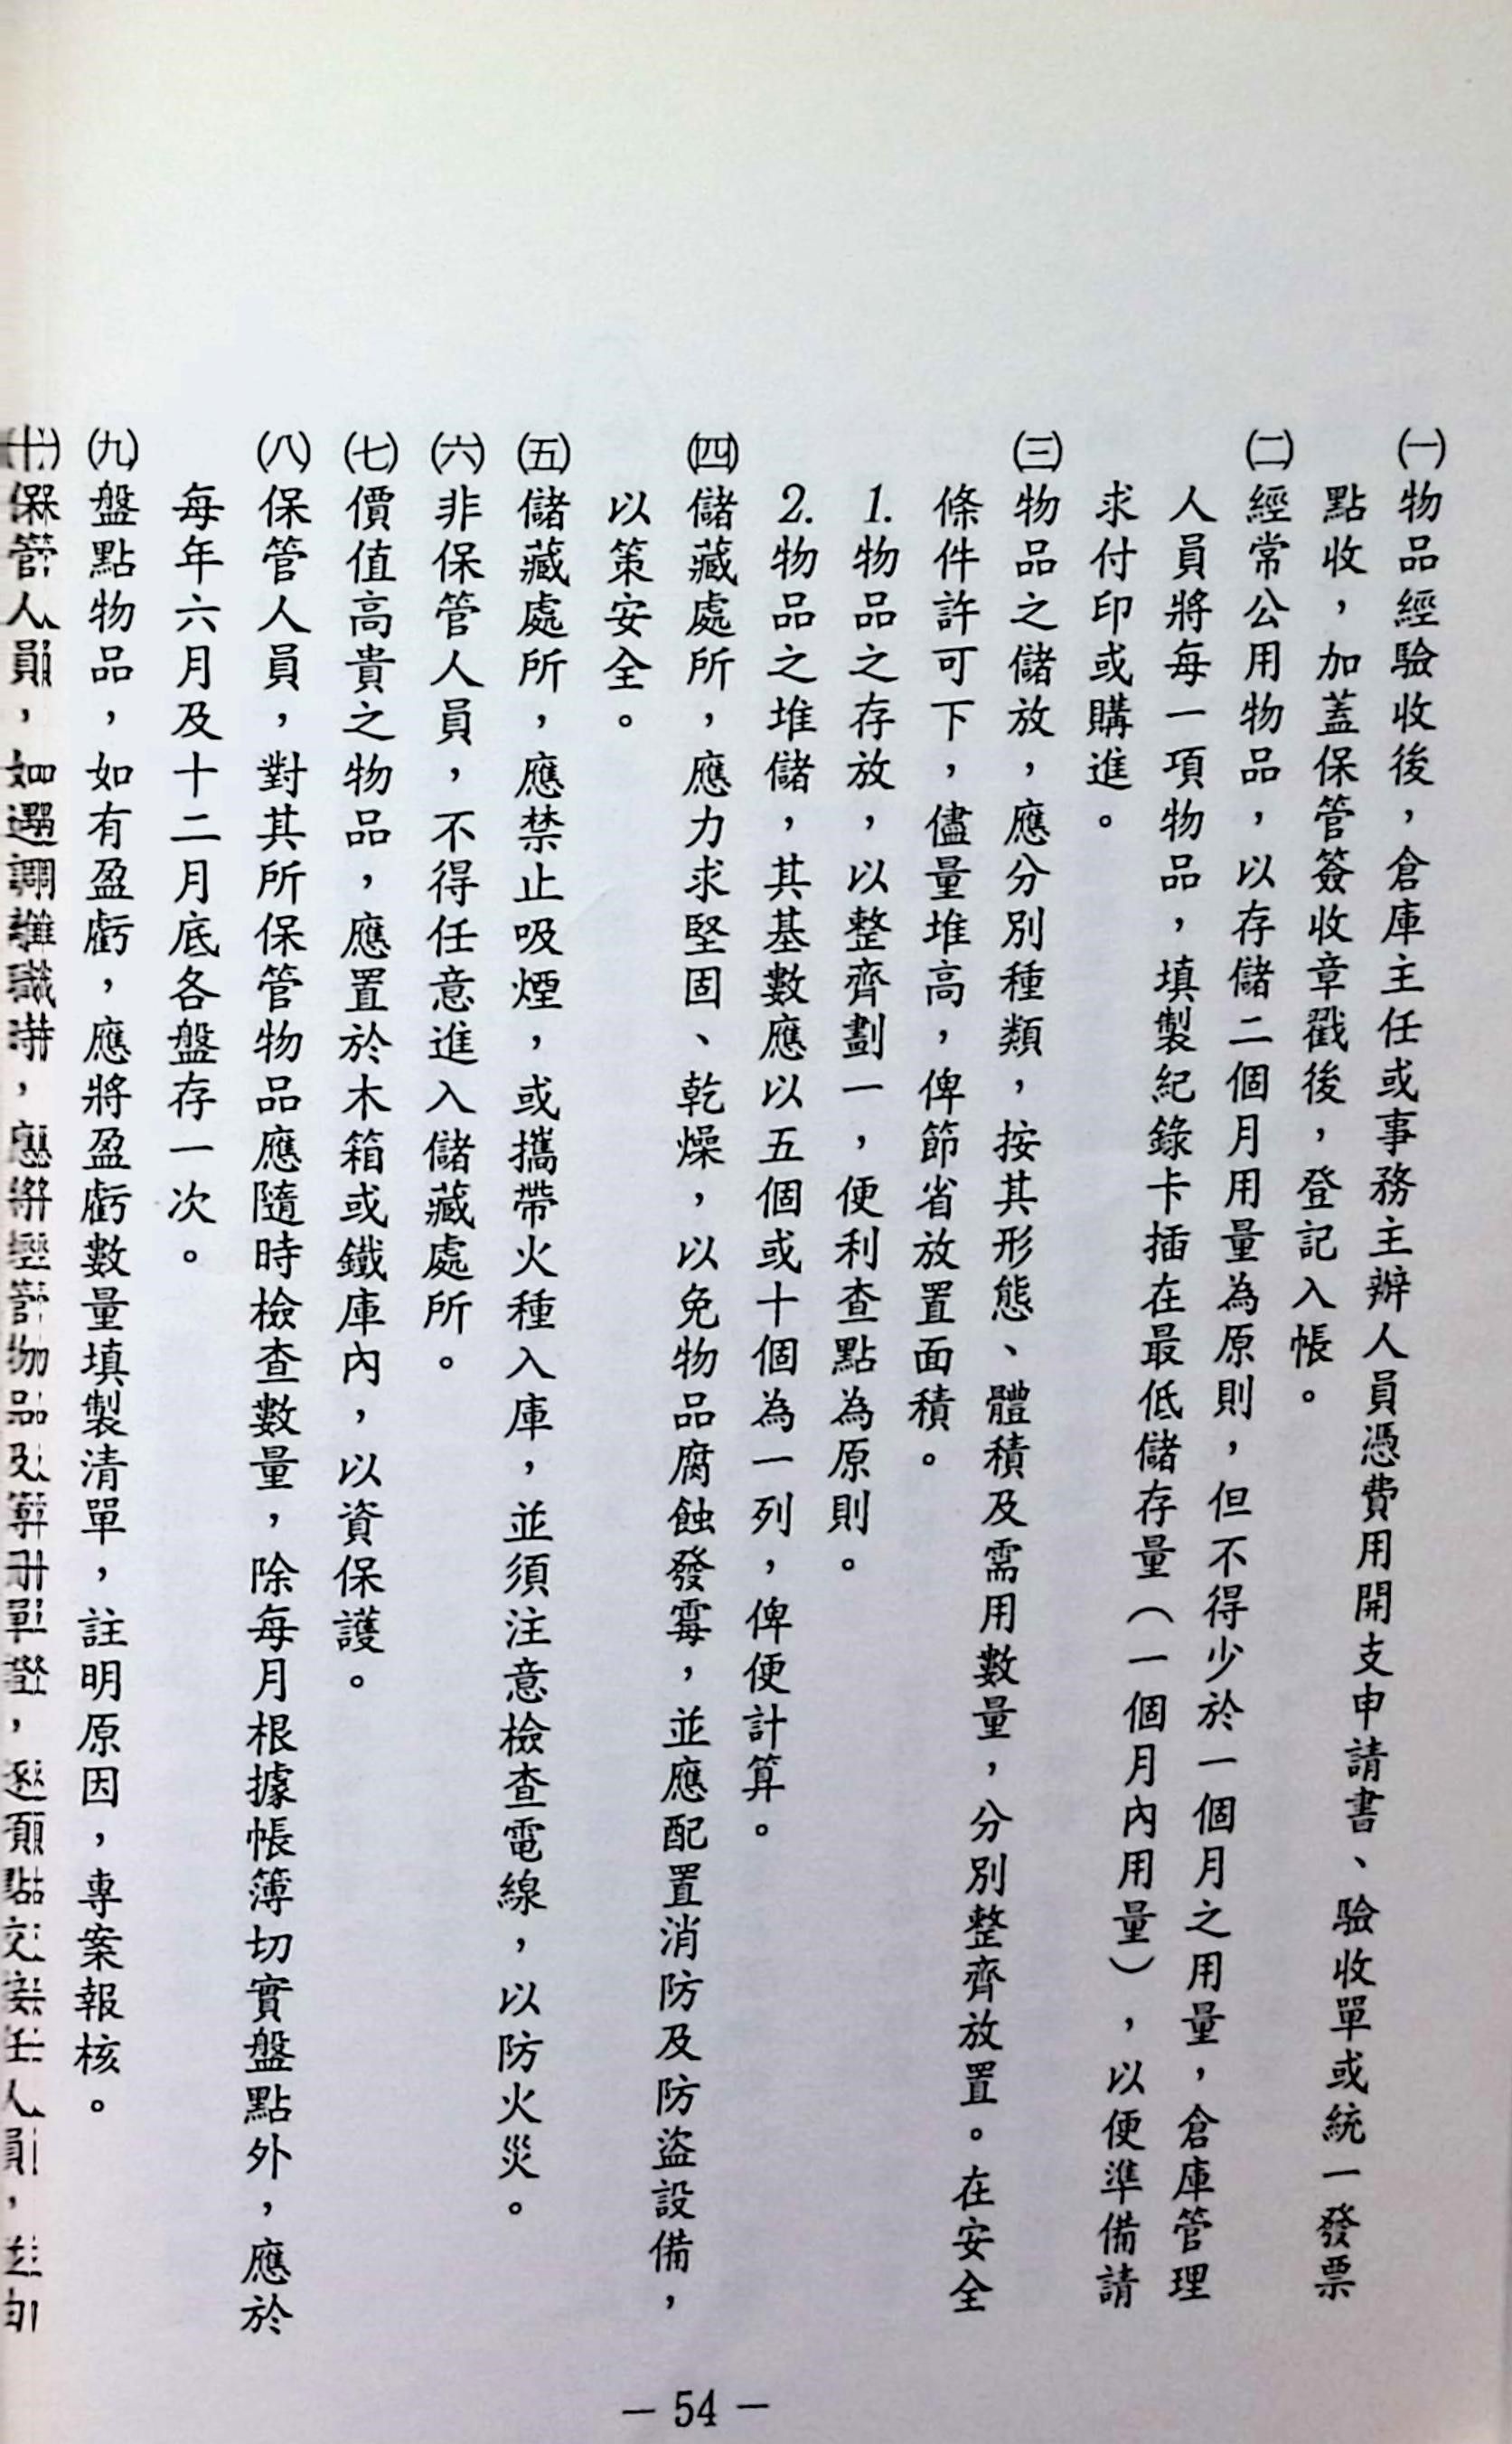 ㈠物品經驗收後，倉庫主任或事務主辦人員憑費用開支申請書、驗收單或統一發票
點收，加蓋保管簽收章戳後，登記入帳。
㈡經常公用物品，以存儲二個月用量為原則，但不得少於一個月之用量，倉庫管理
人員將每一項物品，填製紀錄卡插在最低儲存量（一個月內用量），以便準備請
求付印或購進。
㈢物品之儲放，應分別種類，按其形態、體積及需用數量，分別整齊放置。在安全
條件許可下，儘量堆高，俾節省放置面積。
1.物品之存放，以整齊劃一，便利查點為原則。
2.物品之堆儲，其基數應以五個或十個為一列，俾便計算。
㈣儲藏處所，應力求堅固、乾燥，以免物品腐蝕發霉，並應配置消防及防盜設備，
以策安全。
㈤儲藏處所，應禁止吸煙，或攜帶火種入庫，並須注意檢查電線，以防火災。
㈥非保管人員，不得任意進入儲藏處所。
㈦價值高貴之物品，應置於木箱或鐵庫內，以資保護。
㈧保管人員，對其所保管物品應隨時檢查數量，除每月根據帳簿切實盤點外，應於
每年六月及十二月底各盤存一次。
㈨盤點物品，如有盈虧，應將盈虧數量填製清單，註明原因，專案報核。
㈩保管人員，如遇調離職時，應將經管物品及簿冊單證，逐項點交接任人員，並由
－54－